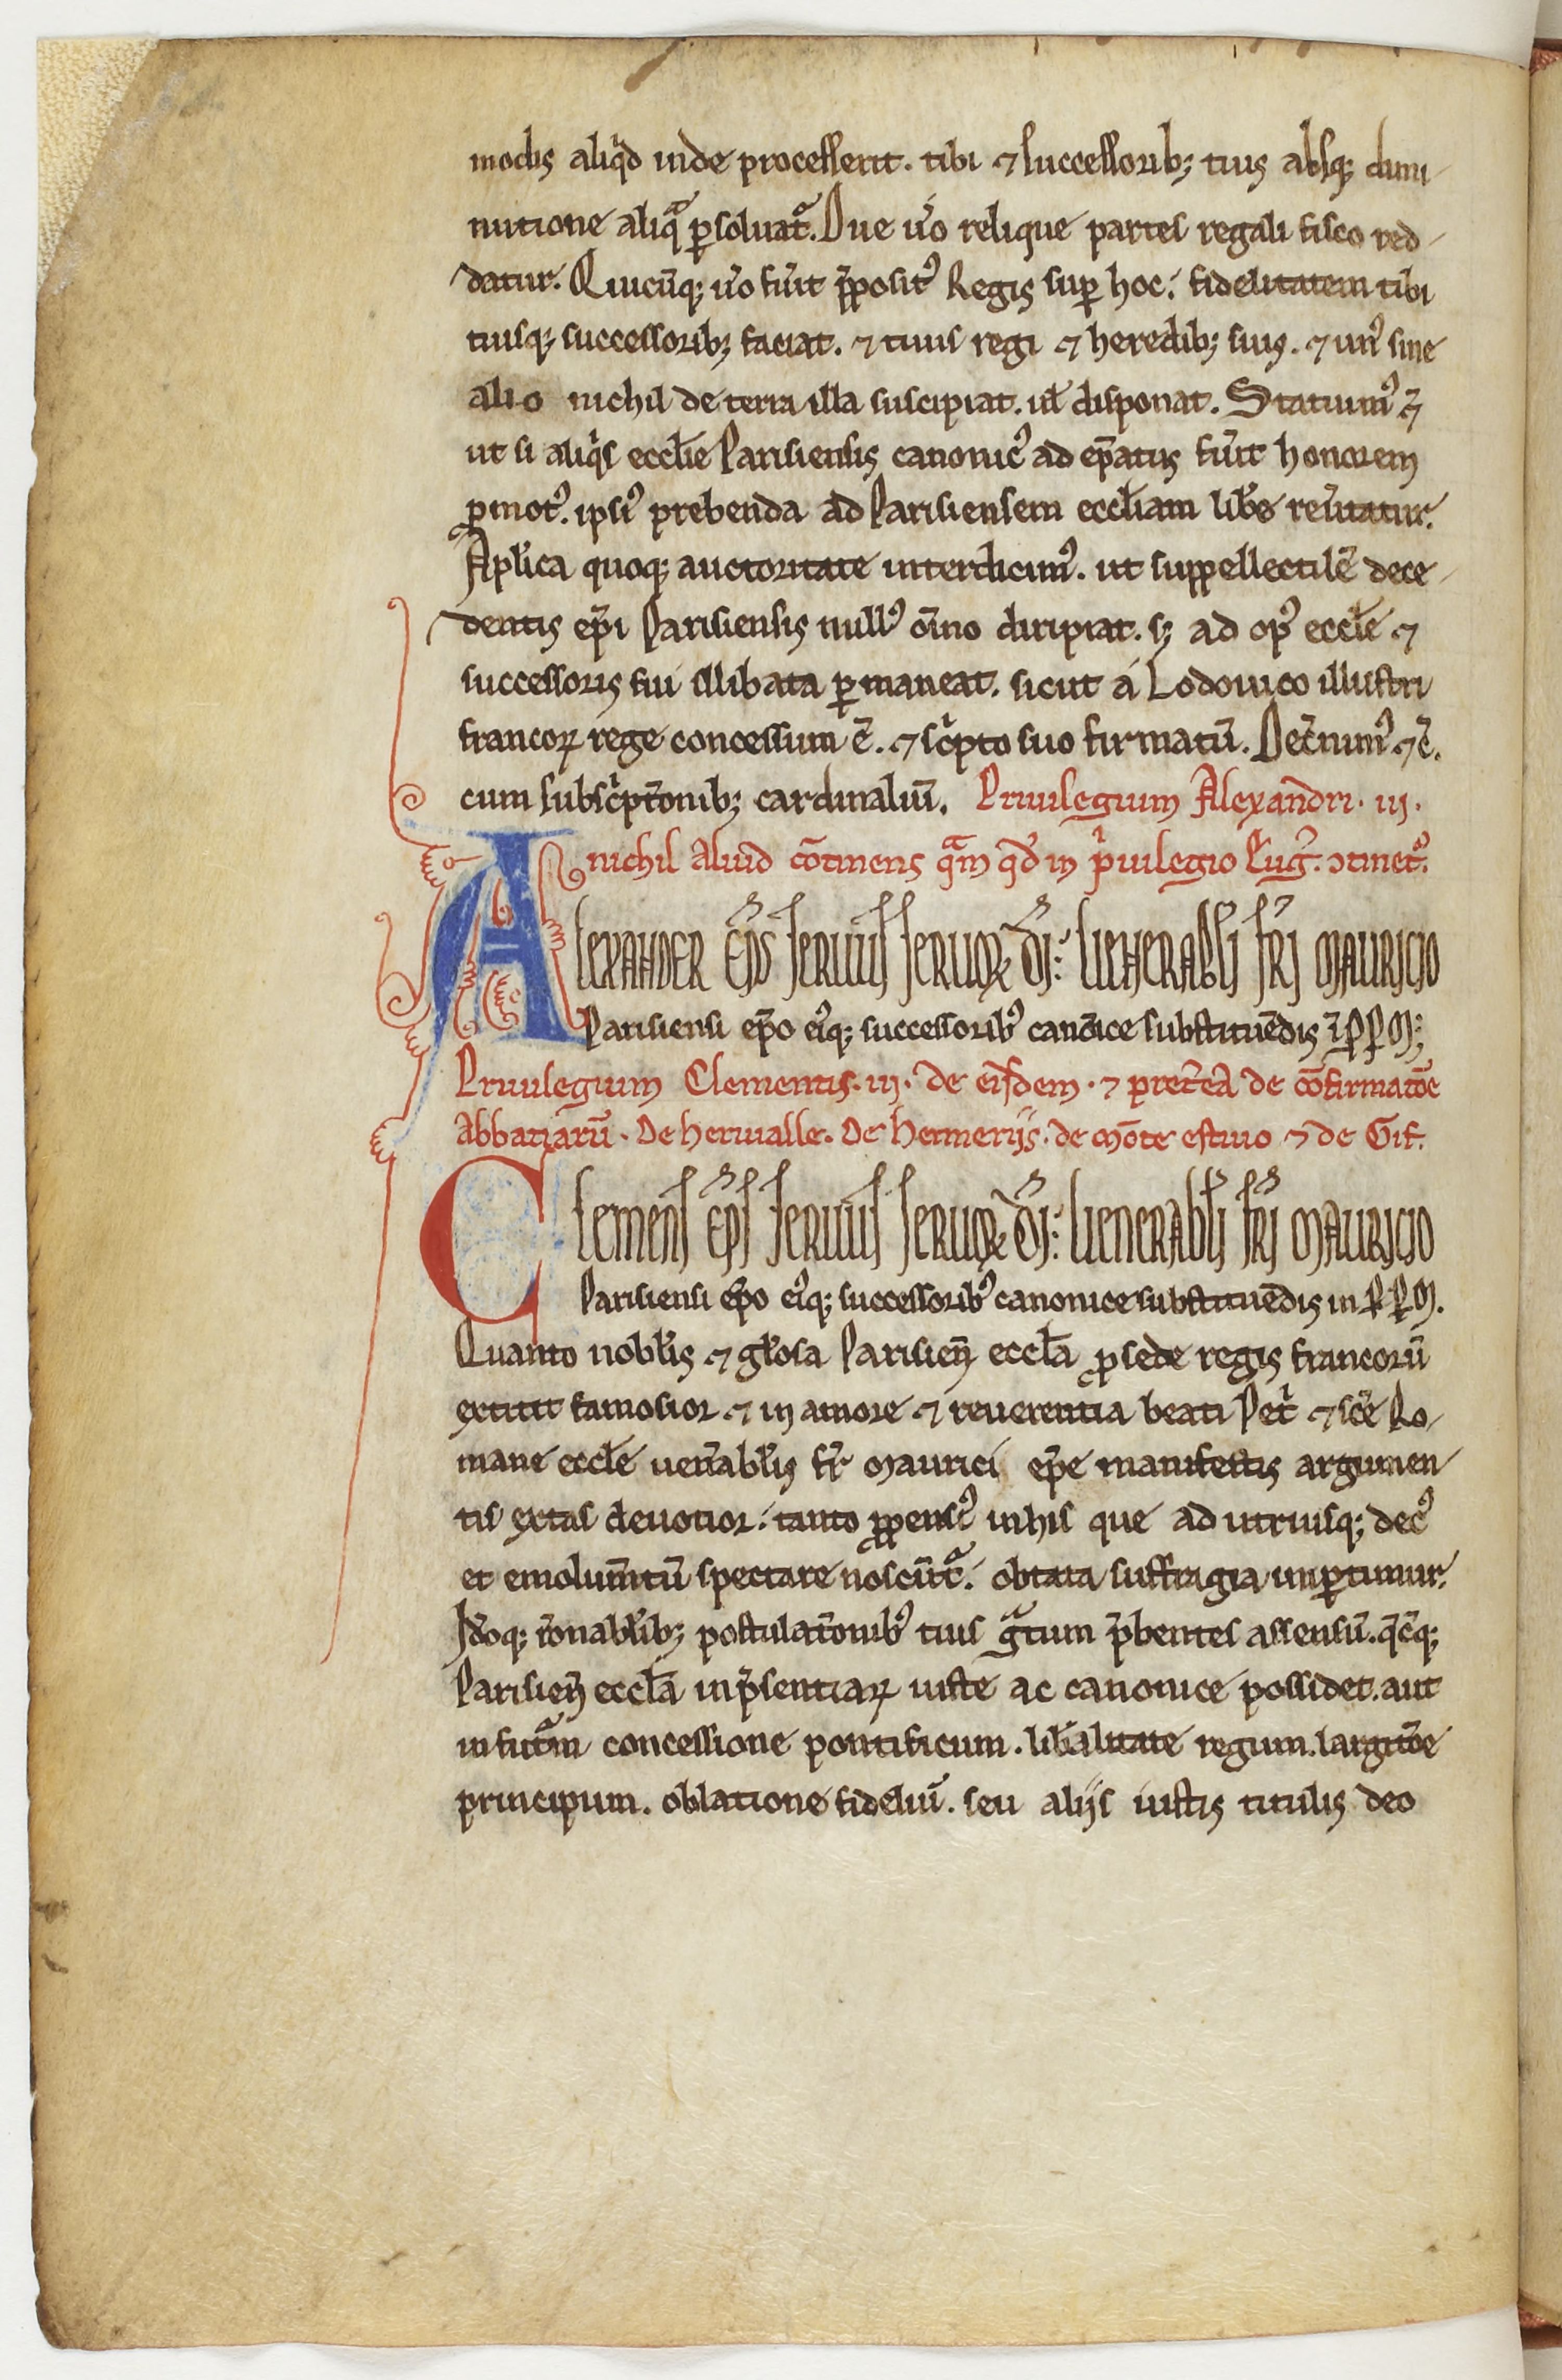 modis aliqͥd inde processerit. tibi ⁊ successorib; tuis absq; dimi-
nutione aliqᷓ ꝑsoluatᷓ. Due ũo relique partes regali fisco red-
datur. Quicũq; ũo fũit p̄posit᷒ Regis suꝑ hoc: fidelitatem tibi
tuisq; successorib; faciat. ⁊ tuus regi ⁊ heredib; suis. ⁊ un᷒ sine
alio nichil de terra illa suscipiat. uł disponat. Statuim᷒ ⁊̄
ut si aliqͥs eccłie Parisiensis canonic᷒ ad ep̄atus fũit honorem
ꝓmot᷒. ipsi᷒ prebenda ad Parisiensem eccłiam lib̃e reũtatur.
Apłica quoq; auctoritate interdicim᷒. ut suppellectilē dece-
dentis ep̄i Parisiensis null᷒ oīno diripiat. s; ad op᷒ eccłe ⁊
successoris sui illibata ꝑmaneat. sicut á Lodouico illustri
francoꝝ rege concessum ē. ⁊ scͥpto suo firmatū. Dec̃nim᷒ ⁊c̃.
cum subscͥpt̄onib; cardinaliū. Priuilegium Alexandri. iii.
nichil aliud cōtinens qᷓm qd̃ in pͥuilegio Eug̃. ↄtinet᷒.
Alexander ep̄s seruus seruoꝝ dī: Uenerabłi fr̄i Mauricio
Parisiensi ep̄o ei᷒q; successorib᷒ canōice substituēdis ī ꝑꝑm:
Priuilegium Clementis. iii. de eisdem. ⁊ pret̃ea de cōfirmatōe
Abbatiarū. De heriualle. De hermeriis. de mōte estiuo ⁊ de Gif.
Clemens ep̄s seruus seruoꝝ dī: Uenerabłi fr̄i Mauricio
Parisiensi ep̄o ei᷒q; successorib᷒ canonice substituēdis in ꝑꝑm.
Quanto nobłis ⁊ głosa Parisieñ eccła ꝓ sede regis francorū
extitit famosior ⁊ in amore ⁊ reuerentia beati Petͥ ⁊ sc̄e Ro-
mane eccłe ueñabłis fr̄ Maurici ep̄e manifestis argumen-
tis extas deuotior: tanto ꝓpensi᷒ in his que ad utriusq; dec᷒
et emolum̄tū spectare noscūtᷓ. obtata suffragia imꝑtimur.
Id̃oq; r̄onabłib; postulat̄onib᷒ tuis gᷓtum p̄bentes assensū. q̄c̄q;
Parisieñ eccła in p̄sentiaꝝ iuste ac canonice possidet. aut
in futᷓm concessione pontificum. lib̃alitate regum. largit̄oe
principum. oblatione fideliū. seu aliis iustis titulis deo